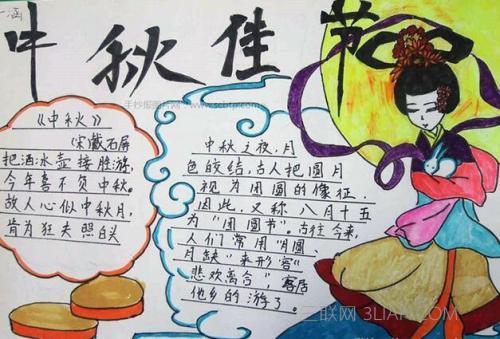 中秋佳节
《中秋》
宋戴石屏
把酒冰壶接胜游,
今年喜不负中秋。
故人心似中秋月,
肯为狂夫照白头
中秋之夜,月
色皎洁,古人把圆月
视为团圆的像征.
因此,又称八月十五
为"团圆节",古往今来,
人们常用"月圆
月缺"来形容"
悲欢离合",客居
他乡的游子。
三联网 3LIAN.COM